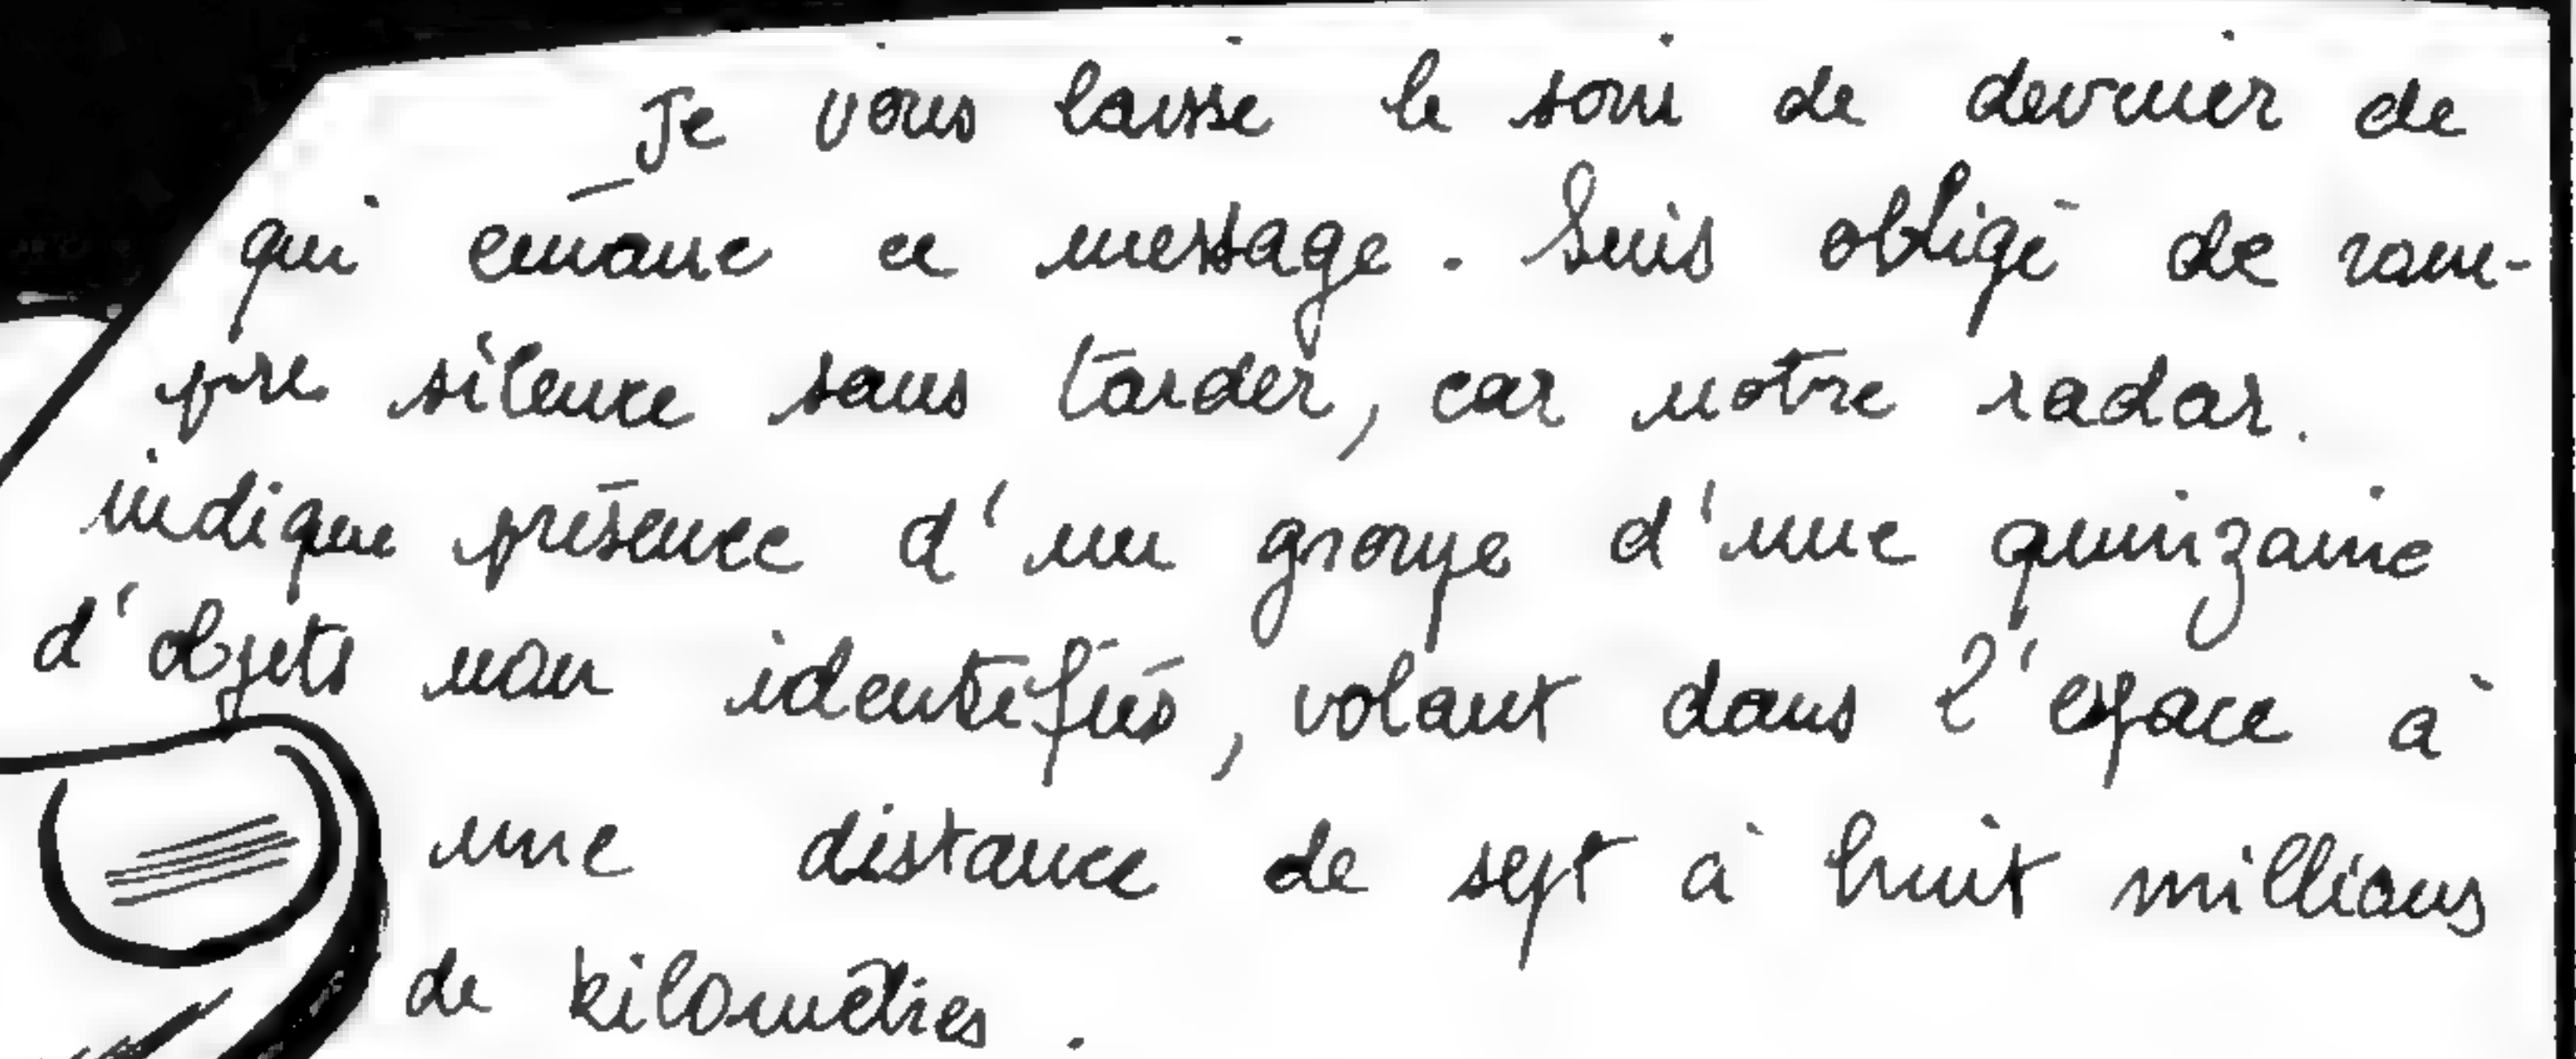 _ Je vous laisse le soin de deviner de
qui émane ce message. Suis obligé de rom-
pre silence sans tarder, car notre radar.
indique présence d'un groupe d'une quinzaine
d'objets non identifiés, volant dans l'espace à
une distance de sept à huit millions
de kilomètres.